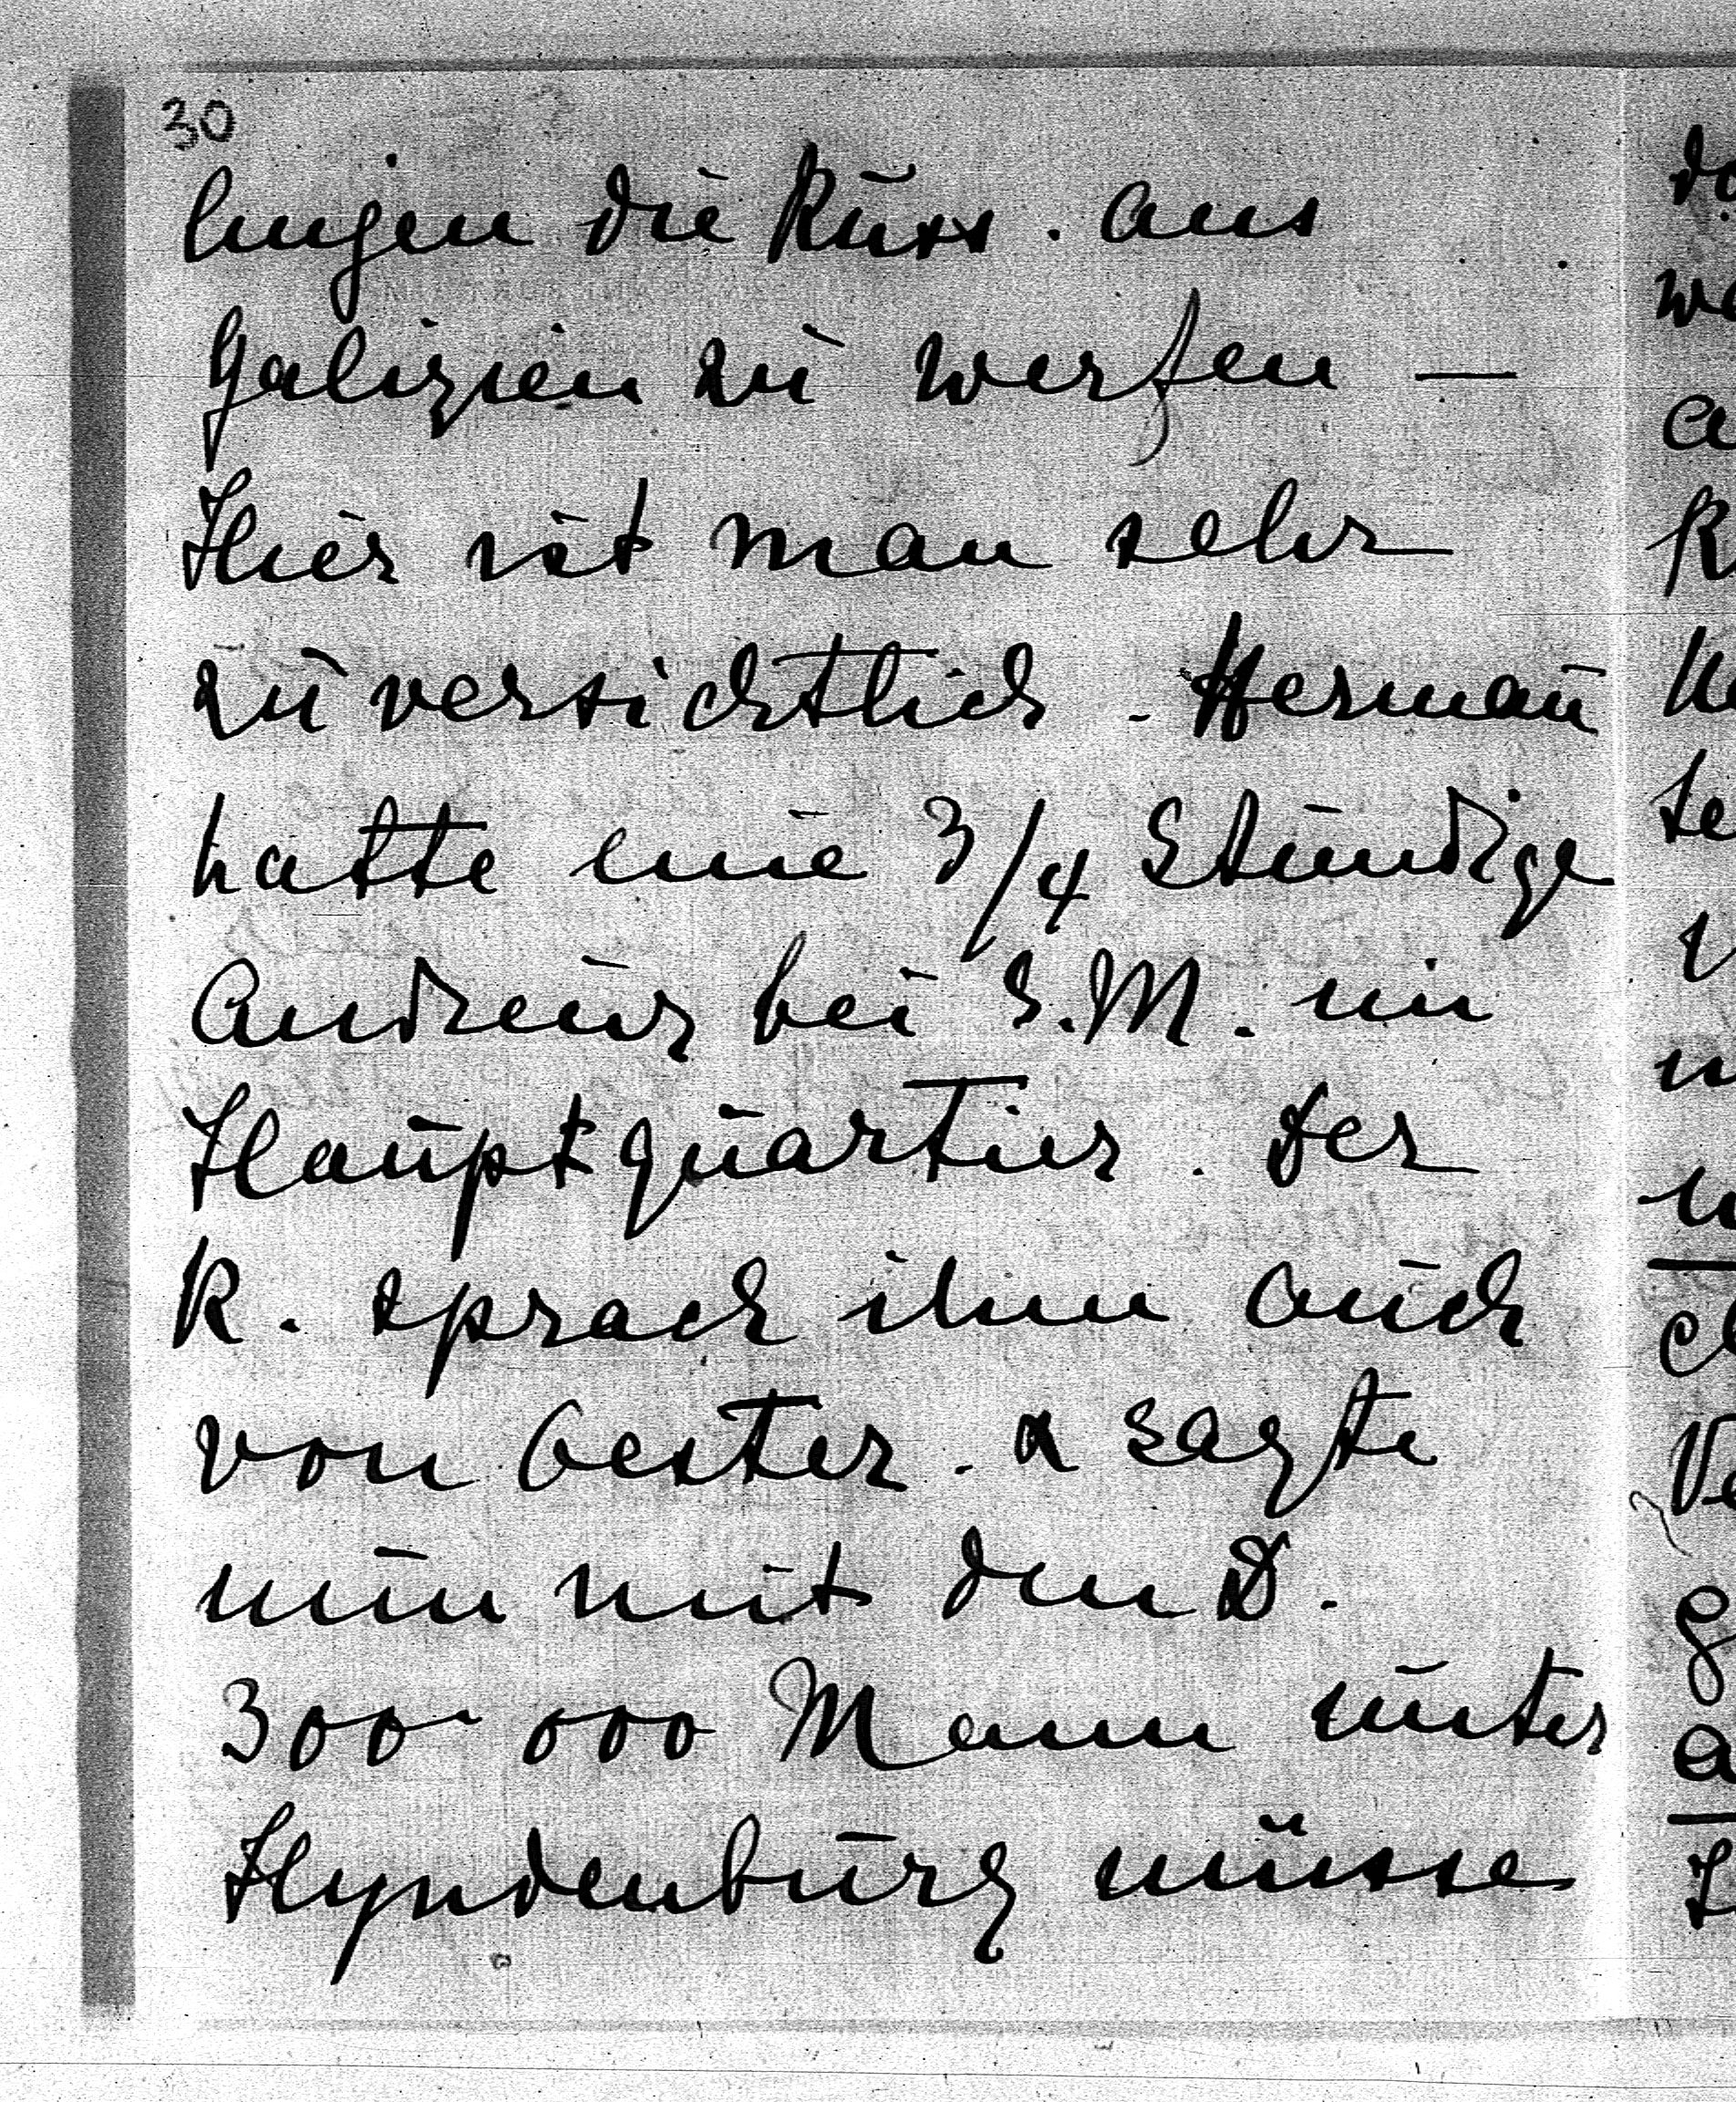 30
lingen die Russ. aus
Galizien zu werfen —
Hier ist man sehr
zuversichtlich. Herman̄
hatte eine 3/4 Stündige
Audienz bei S.M. im
Hauptquartier. Der
K. sprach ihm auch
von Oester. & sagte
nun mit den D.
300 000 Mann unter
Hyndenburg müsse